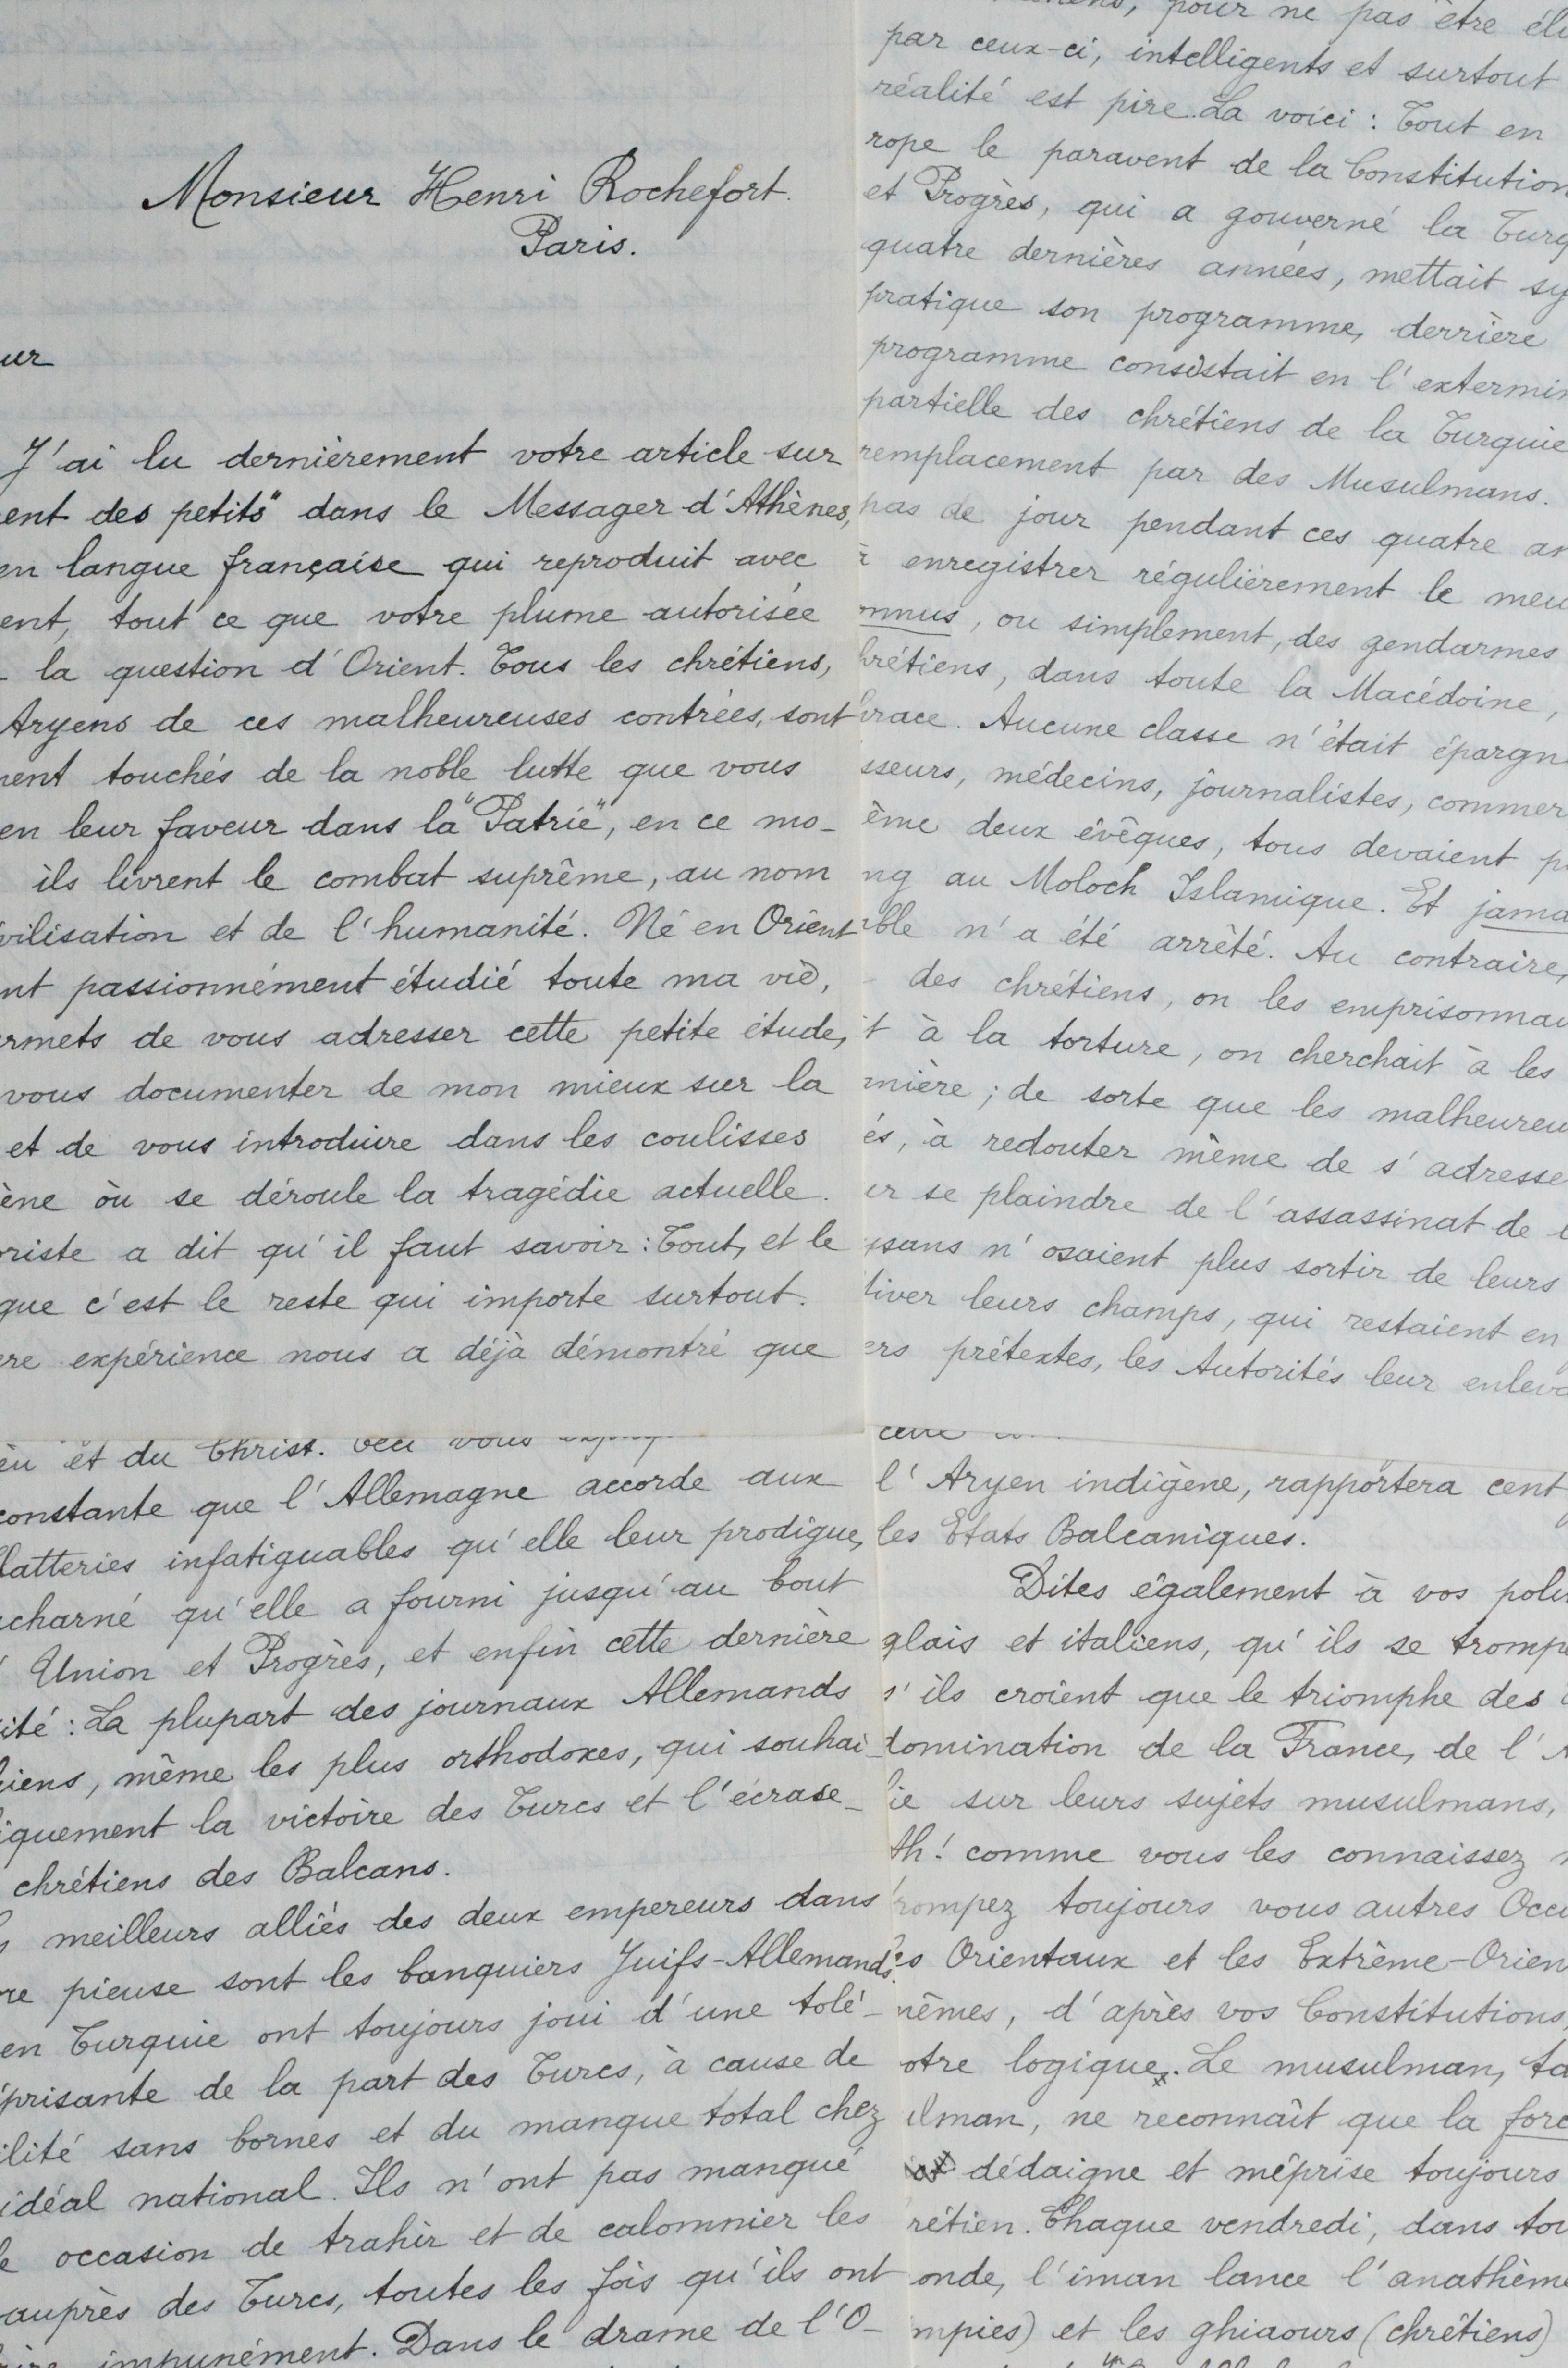 Monsieur Henri Rochefort.
Paris.
ur
J'ai lu dernièrement votre article sur
ent des petits" dans le Messager d'Athènes,
en langue française qui reproduit avec
ent, tout ce que votre plume autorisée
la question d'Orient. Tous les chrétiens,
Aryens de ces malheureuses contrées, sont
ent touchés de la noble lutte que vous
en leur faveur dans la "Patrie", en ce mo-
ils livrent le combat suprême, au nom
vilisation et de l'humanité. Né en Orient
nt passionnément étudié toute ma vie,
rmets de vous adresser cette petite étude,
vous documenter de mon mieux sur la
et de vous introduire dans les coulisses
ène où se déroule la tragédie actuelle.
oriste a dit qu'il faut savoir : Tout, et le
que c'est le reste qui importe surtout.
ère expérience nous a déjà démontré que
pour ne pas être élu
par ceux-ci, intelligents et surtout
réalité est pire. La voici : Tout en
rope le paravent de la Constitution
et Progrès, qui a gouverné la Turq
quatre dernières années, mettait sy
pratique son programme, derrière
programme consistait en l'extermin
partielle des chrétiens de la Turquie
remplacement par des Musulmans.
pas de jour pendant ces quatre an
à enregistrer régulièrement le meu
nnus, ou simplement, des gendarmes
hrétiens, dans toute la Macédoine,
hrace. Aucune classe n'était épargn
sseurs, médecins, journalistes, commer
ême deux évêques, tous devaient p
ng au Moloch Islamique. Et jama
ble n'a été arrêté. Au contraire,
des chrétiens, on les emprisonnai
t à la torture, on cherchait à les
mière ; de sorte que les malheureu
és, à redouter même de s'adresse
er se plaindre de l'assassinat de
ysans n'osaient plus sortir de leurs
tiver leurs champs, qui restaient en
ers prétextes, les Autorités leur enleva
eu et du Christ. Ceci vous
constante que l'Allemagne accorde aux
latteries infatiguables qu'elle leur prodigue,
acharné qu'elle a fourni jusqu'au bout
Union et Progrès, et enfin cette dernière
ité : La plupart des journaux Allemands
iens, même les plus orthodoxes, qui souhai-
iquement la victoire des Turcs et l'écrase-
chrétiens des Balcans.
s meilleurs alliés des deux empereurs dans
re pieuse sont les banquiers Juifs-Allemands.
en Turquie ont toujours joui d'une tolé-
prisante de la part des Turcs, à cause de
ilité sans bornes et du manque total chez
idéal national. Ils n'ont pas manqué
e occasion de trahir et de calomnier les
auprès des Turcs, toutes les fois qu'ils ont
impunément. Dans le drame de l'O-
l'Aryen indigène, rapportera cent
les Etats Balcaniques.
Dites également à vos poli
glais et italiens, qu'ils se tromp
s'ils croient que le triomphe des
domination de la France, de l'A
ie sur leurs sujets musulmans,
Ah! comme vous les connaissez
rompez toujours vous autres Occi
es Orientaux et les Extrême-Orien
mêmes, d'après vos Constitutions,
otre logique. Le musulman, ta
lman, ne reconnaît que la forc
dédaigne et méprise toujours
rétien. Chaque vendredi, dans tou
onde, l'iman lance l'anathème
mpies) et les ghiaours (chrétiens)